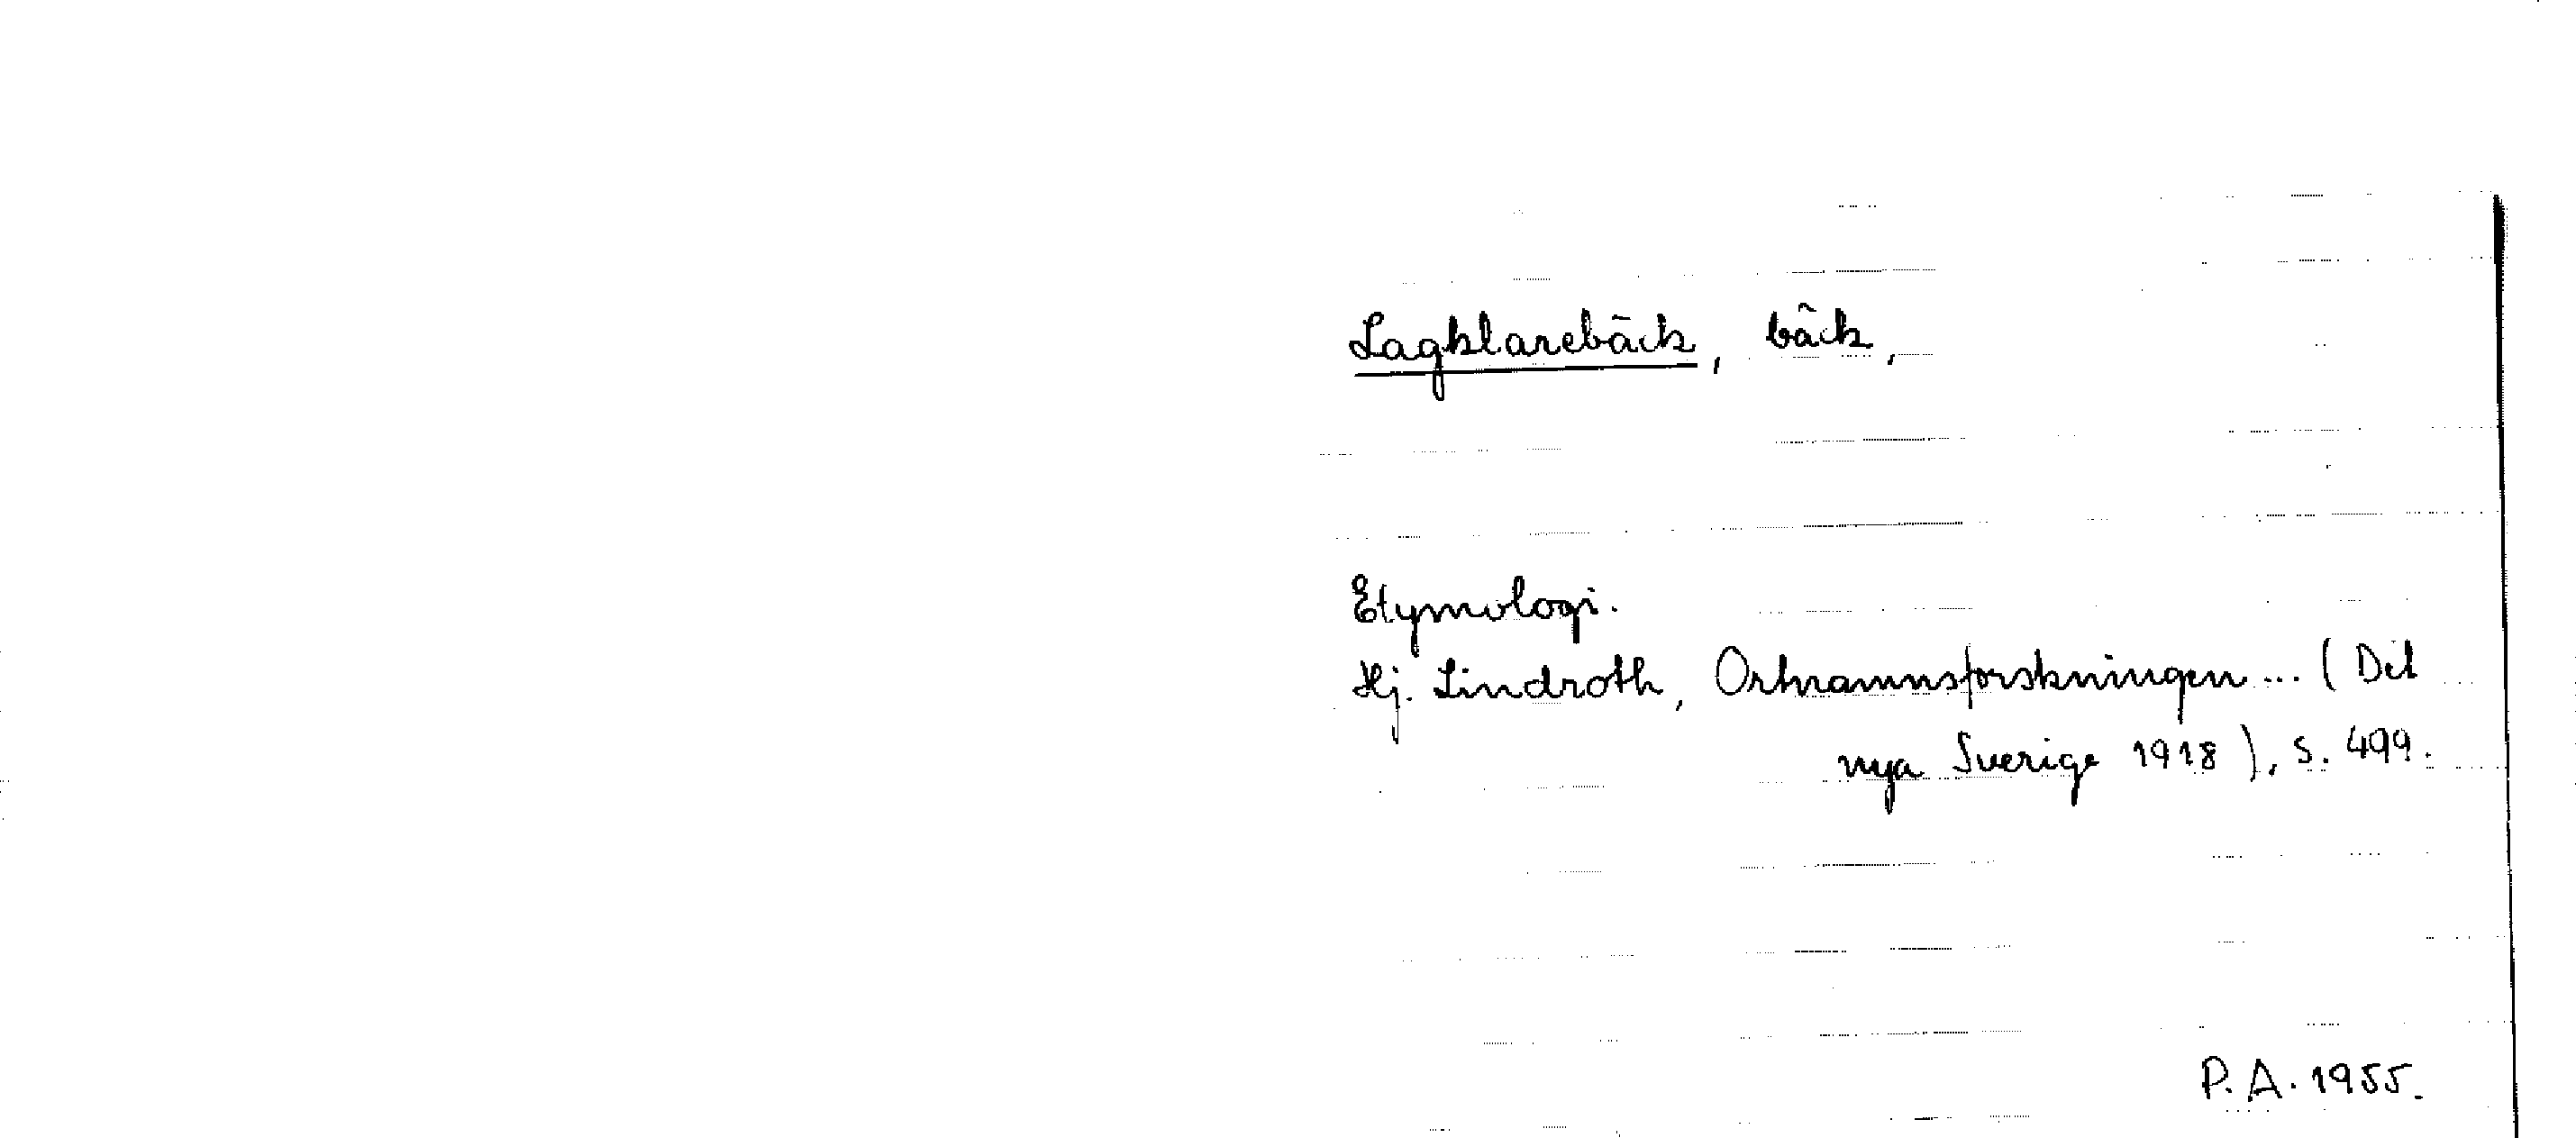 Lagklarebäck, bäck,
Etymologi.
Hj. Lindroth, Ortnamnsforskningen... (Det
nya Sverige 1918), s. 499.
P.A. 1955.